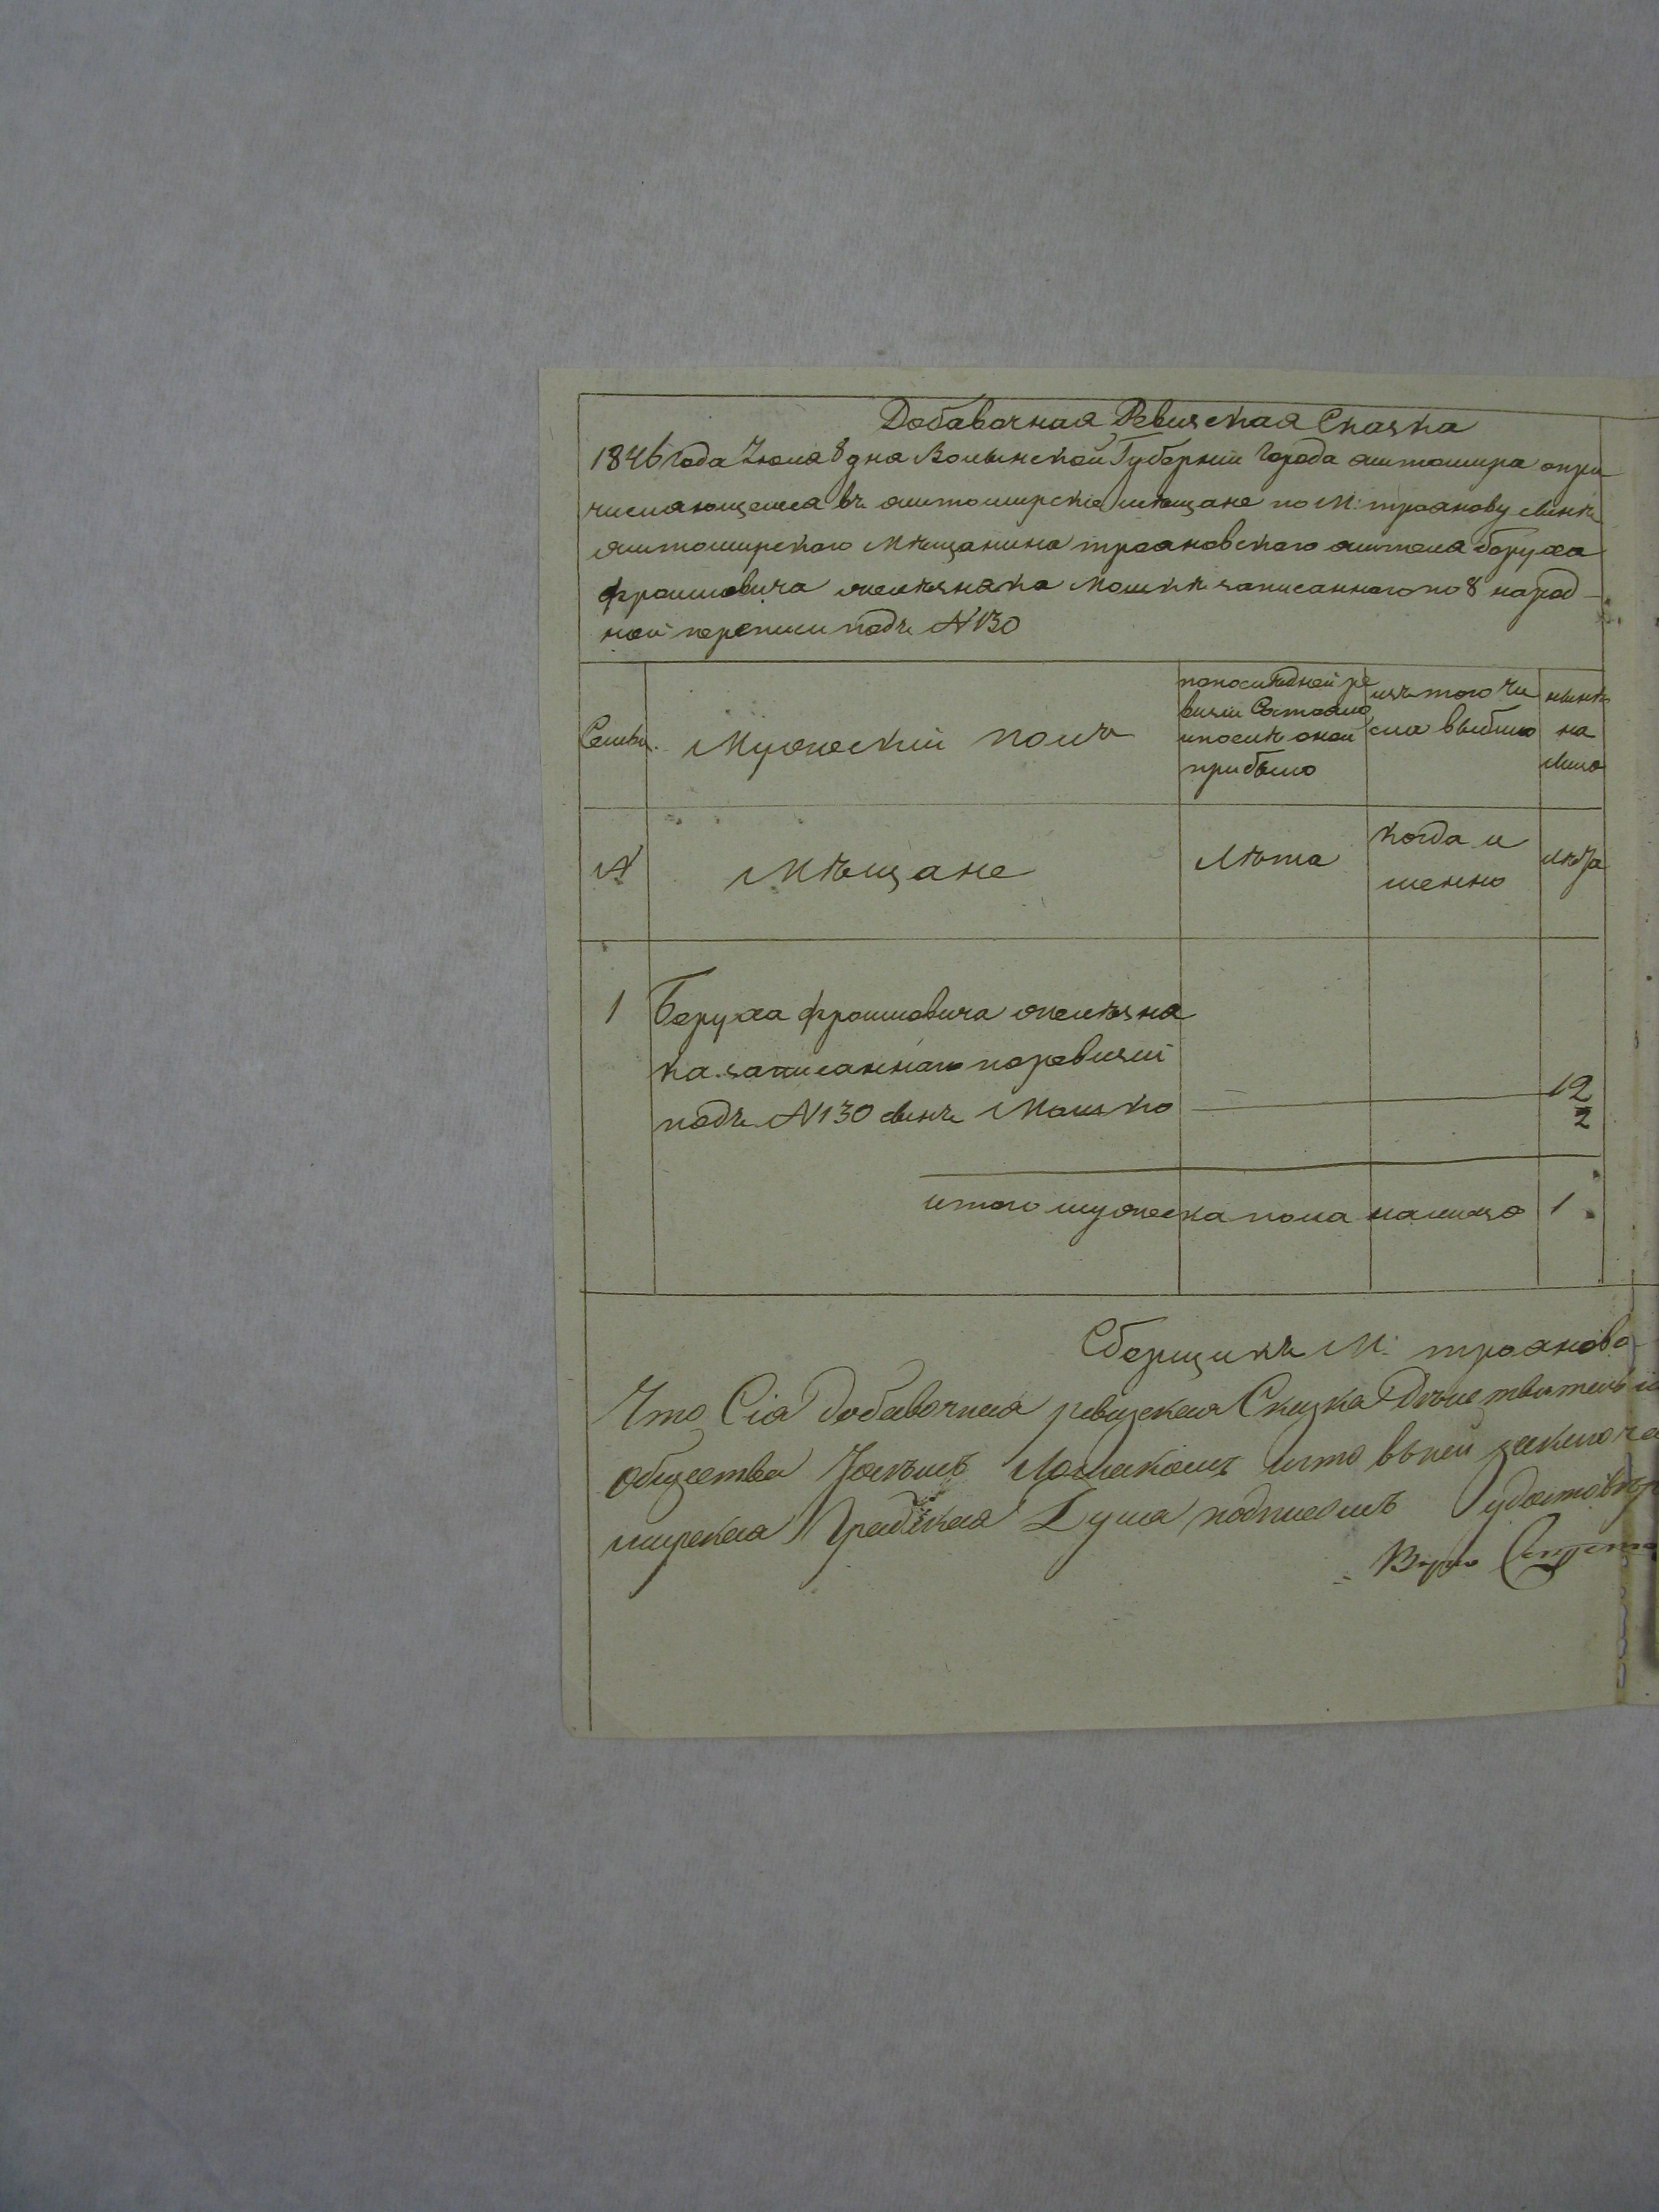 Добавочная Ревизская Сказка
1846 года Іюля 8 дня Волынской Губерніи Города житомира опри
числяющемся въ житомирскіе мѣщане по М: троянову сынѣ
житомирского Мѣщанина трояновского жителя боруха
фроимовича желѣзняка Мошкѣ записанного по 8 народ-
ной переписи подъ №130
Семьи.
Мужескій полъ
по последней ре
визіи Состояло
и послѣ оной
прибыло
изъ того чи
сла выбыло
нынѣ
на
лицо
№
Мѣщане
Лѣта
когда и
менно
лѣта
1 Боруха фроимовича желѣзня
ка записанного по ревизіи
подъ №130 сынъ Мошко 12
2
итого мужеска пола налицо 1
Сборщикъ М: трояново
Что Сія добавочная ревизская Сказка Дѣйствительно
общества Лошакомъ и что въ ней заключа
мирская Градская Дума подписомъ удостовѣр
Вѣрно